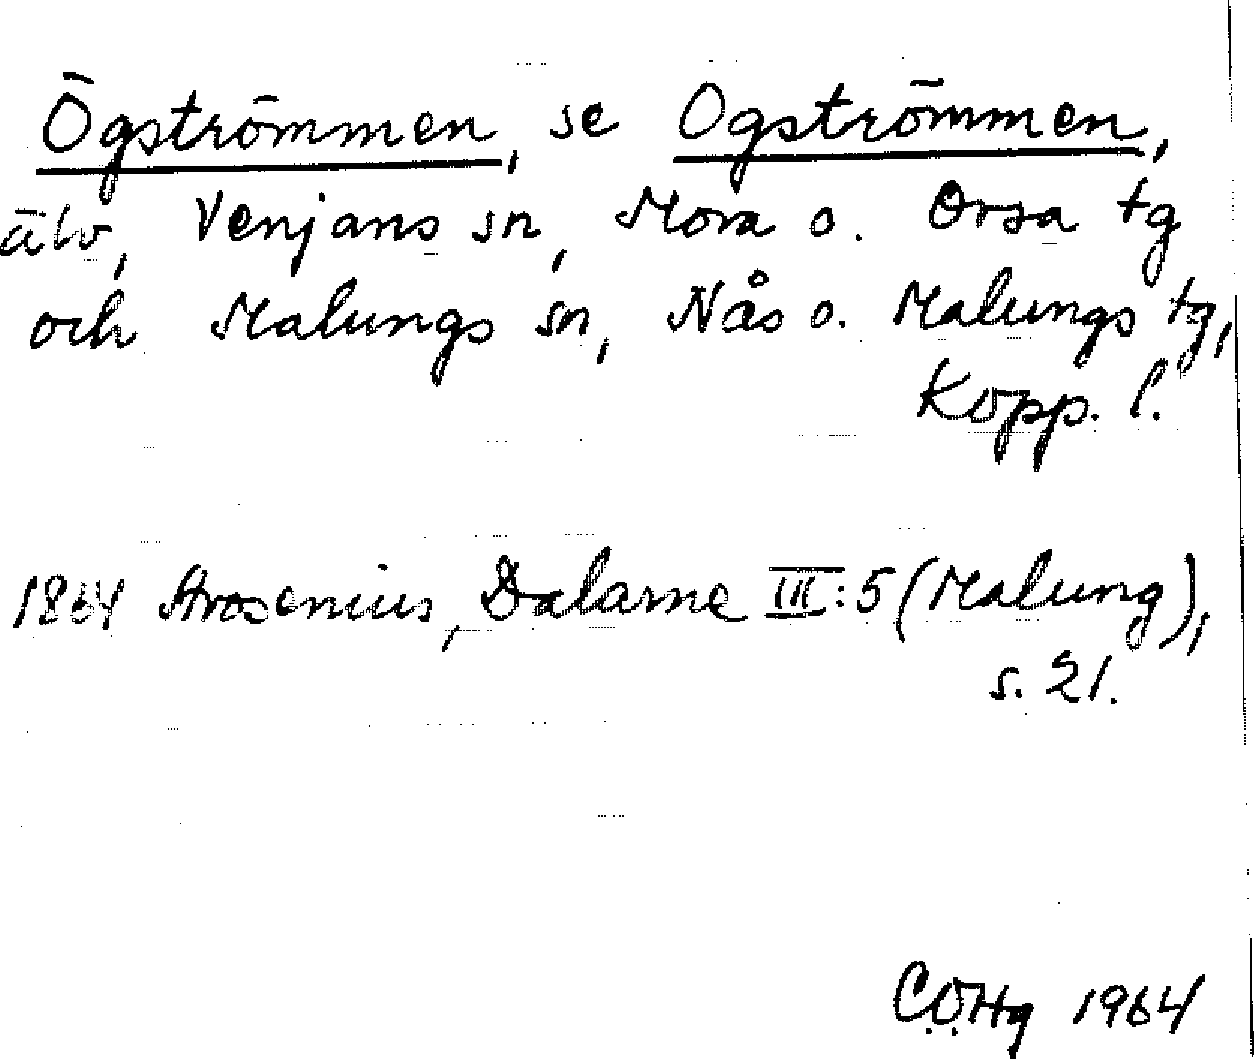 Ögströmmen, se Ogströmmen,
älv, Venjans sn, Mora o. Orsa tg
och Malungs sn, Nås o. Malungs tg,
Kopp. l.
1864 Arosenius, Dalarne III:5 (Malung),
s. 21.
C.Ö.Hg 1964